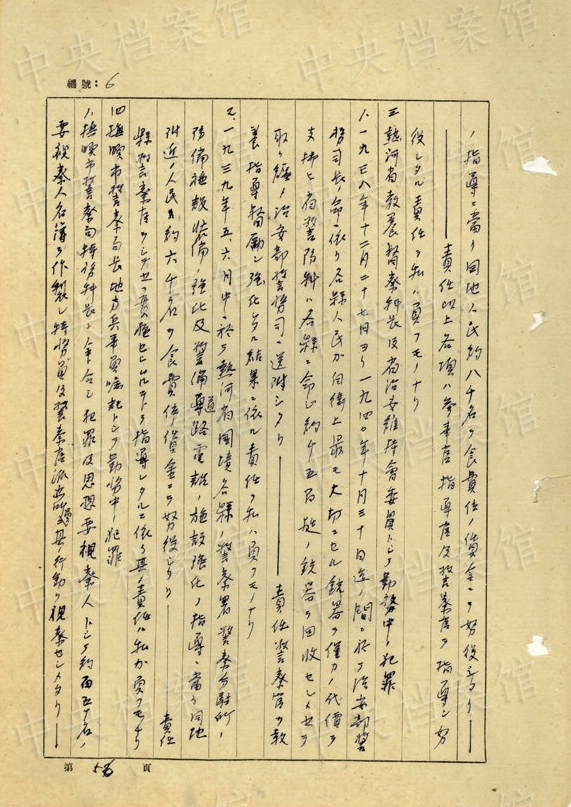 編號：6
ノ指導ニ當リ同地人民約八千名ヲ食費位ノ賃金ニテ努役シタリ――
――責任以上各項ハ参事官、指導官及警察官ヲ指導シ努
役シタル責任ヲ私ハ負フモノナリ
三、熱河省教養督察科長及省治安維持會委員トシテ勤務中ノ犯罪
1、一九三八年十二月二十七日ヨリ一九四〇年十月三十日迄ノ間ニ於テ治安部警
務司長ノ命ニ依リ各縣人民カ自衛上最モ大切ニセル銃器ヲ僅カノ代價ヲ
支拂ヒ省警防科ハ各縣ニ命シ約ケ五百挺ノ銃器ヲ回收セシメセヲ
取リ纏メ治安部警務司ニ送附シタリ――責任警察官ヲ教
養指導督勵シ強化シタル結果ニ依ル責任ヲ私ハ負フモノナリ
2、一九三九年五、六月中ニ於テ熱河省國境各縣ノ警察署警察分駐所ノ
防備施設裝備ノ強化及警備道路電話ノ施設強化ノ指導ニ當リ同地
附近ノ人民ヲ約六千名ヲ食費位ノ賃金ニテ努役シタリ――責任
縣警察官ヲシテセヲ實施セシムルコトヲ指導シタルニ依リ其ノ責任ハ私カ負フモノナリ
四、撫順市警察局長地方兵事員崛起トシテ勤務中ノ犯罪
1、撫順市警察局特務科長ニ命令シ犯罪及思想要視察人トシテ約百五十名ノ
要視察人名簿ヲ作製シ特務員及警察官派出所ヲ其ノ行動ヲ視察セシメタリ――
第 56 頁
中央档案馆